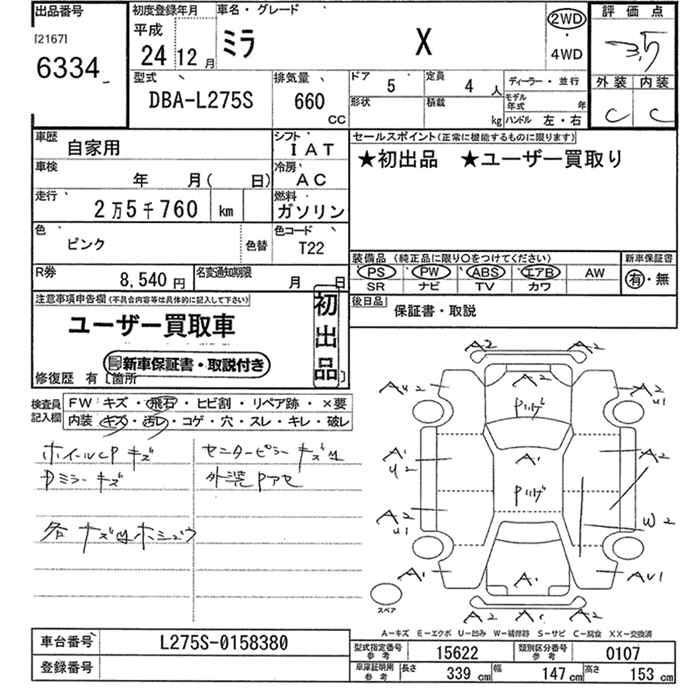 出品番号 初度登録年月 車名・グレード 評価点
[2167] 平成
6334 24 12月 ミラ X 2WD ・ 4WD 3.5
型式 排気量 ドア 定員 ディーラー・並行 外装 内装
DBA-L275S 660 CC 5 4人 C C
形状 積載 kg モデル年式 年
ハンドル 左・右
車歴 自家用 シフト IAT セールスポイント(正常に機能するものに限ります)
★初出品 ★ユーザー買取り
車検 年 月( 日) 冷房 AC
走行 2万5千760 km 燃料 ガソリン
色 ピンク 色替 色コード T22
装備品(純正品に限り○をつけてください) 新車保証書
PS PW ABS エアB AW 有・無
SR ナビ TV カワ
R券 8,540円 名変通知期限 月 日
後日品 保証書・取説
注意事項申告欄(不具合内容等は具体的に記入して下さい)
ユーザー買取車
初出品
新車保証書・取説付き
修復歴 有[箇所
検査員記入欄 FW キズ・飛石・ヒビ割・リペア跡・×要
内装 キズ・汚レ・コゲ・穴・スレ・キレ・破レ
ホイールCP キズ
Dミラー キズ
センターピラー キズ
外装 Pアセ
A2 A2
A2
AU2 A2
U1
A1 A2
U2
A1
A2 W2
U1
A1 A1 AU1
A2 A1 A2
スペア
A-キズ E-エクボ U-凹み W-補修跡 S-サビ C-腐食 XX-交換済
車台番号 L275S-0158380
登録番号
型式指定番号 参考 15622 類別区分番号 参考 0107
車庫証明用 参考 長さ 339 cm 幅 147 cm 高さ 153 cm